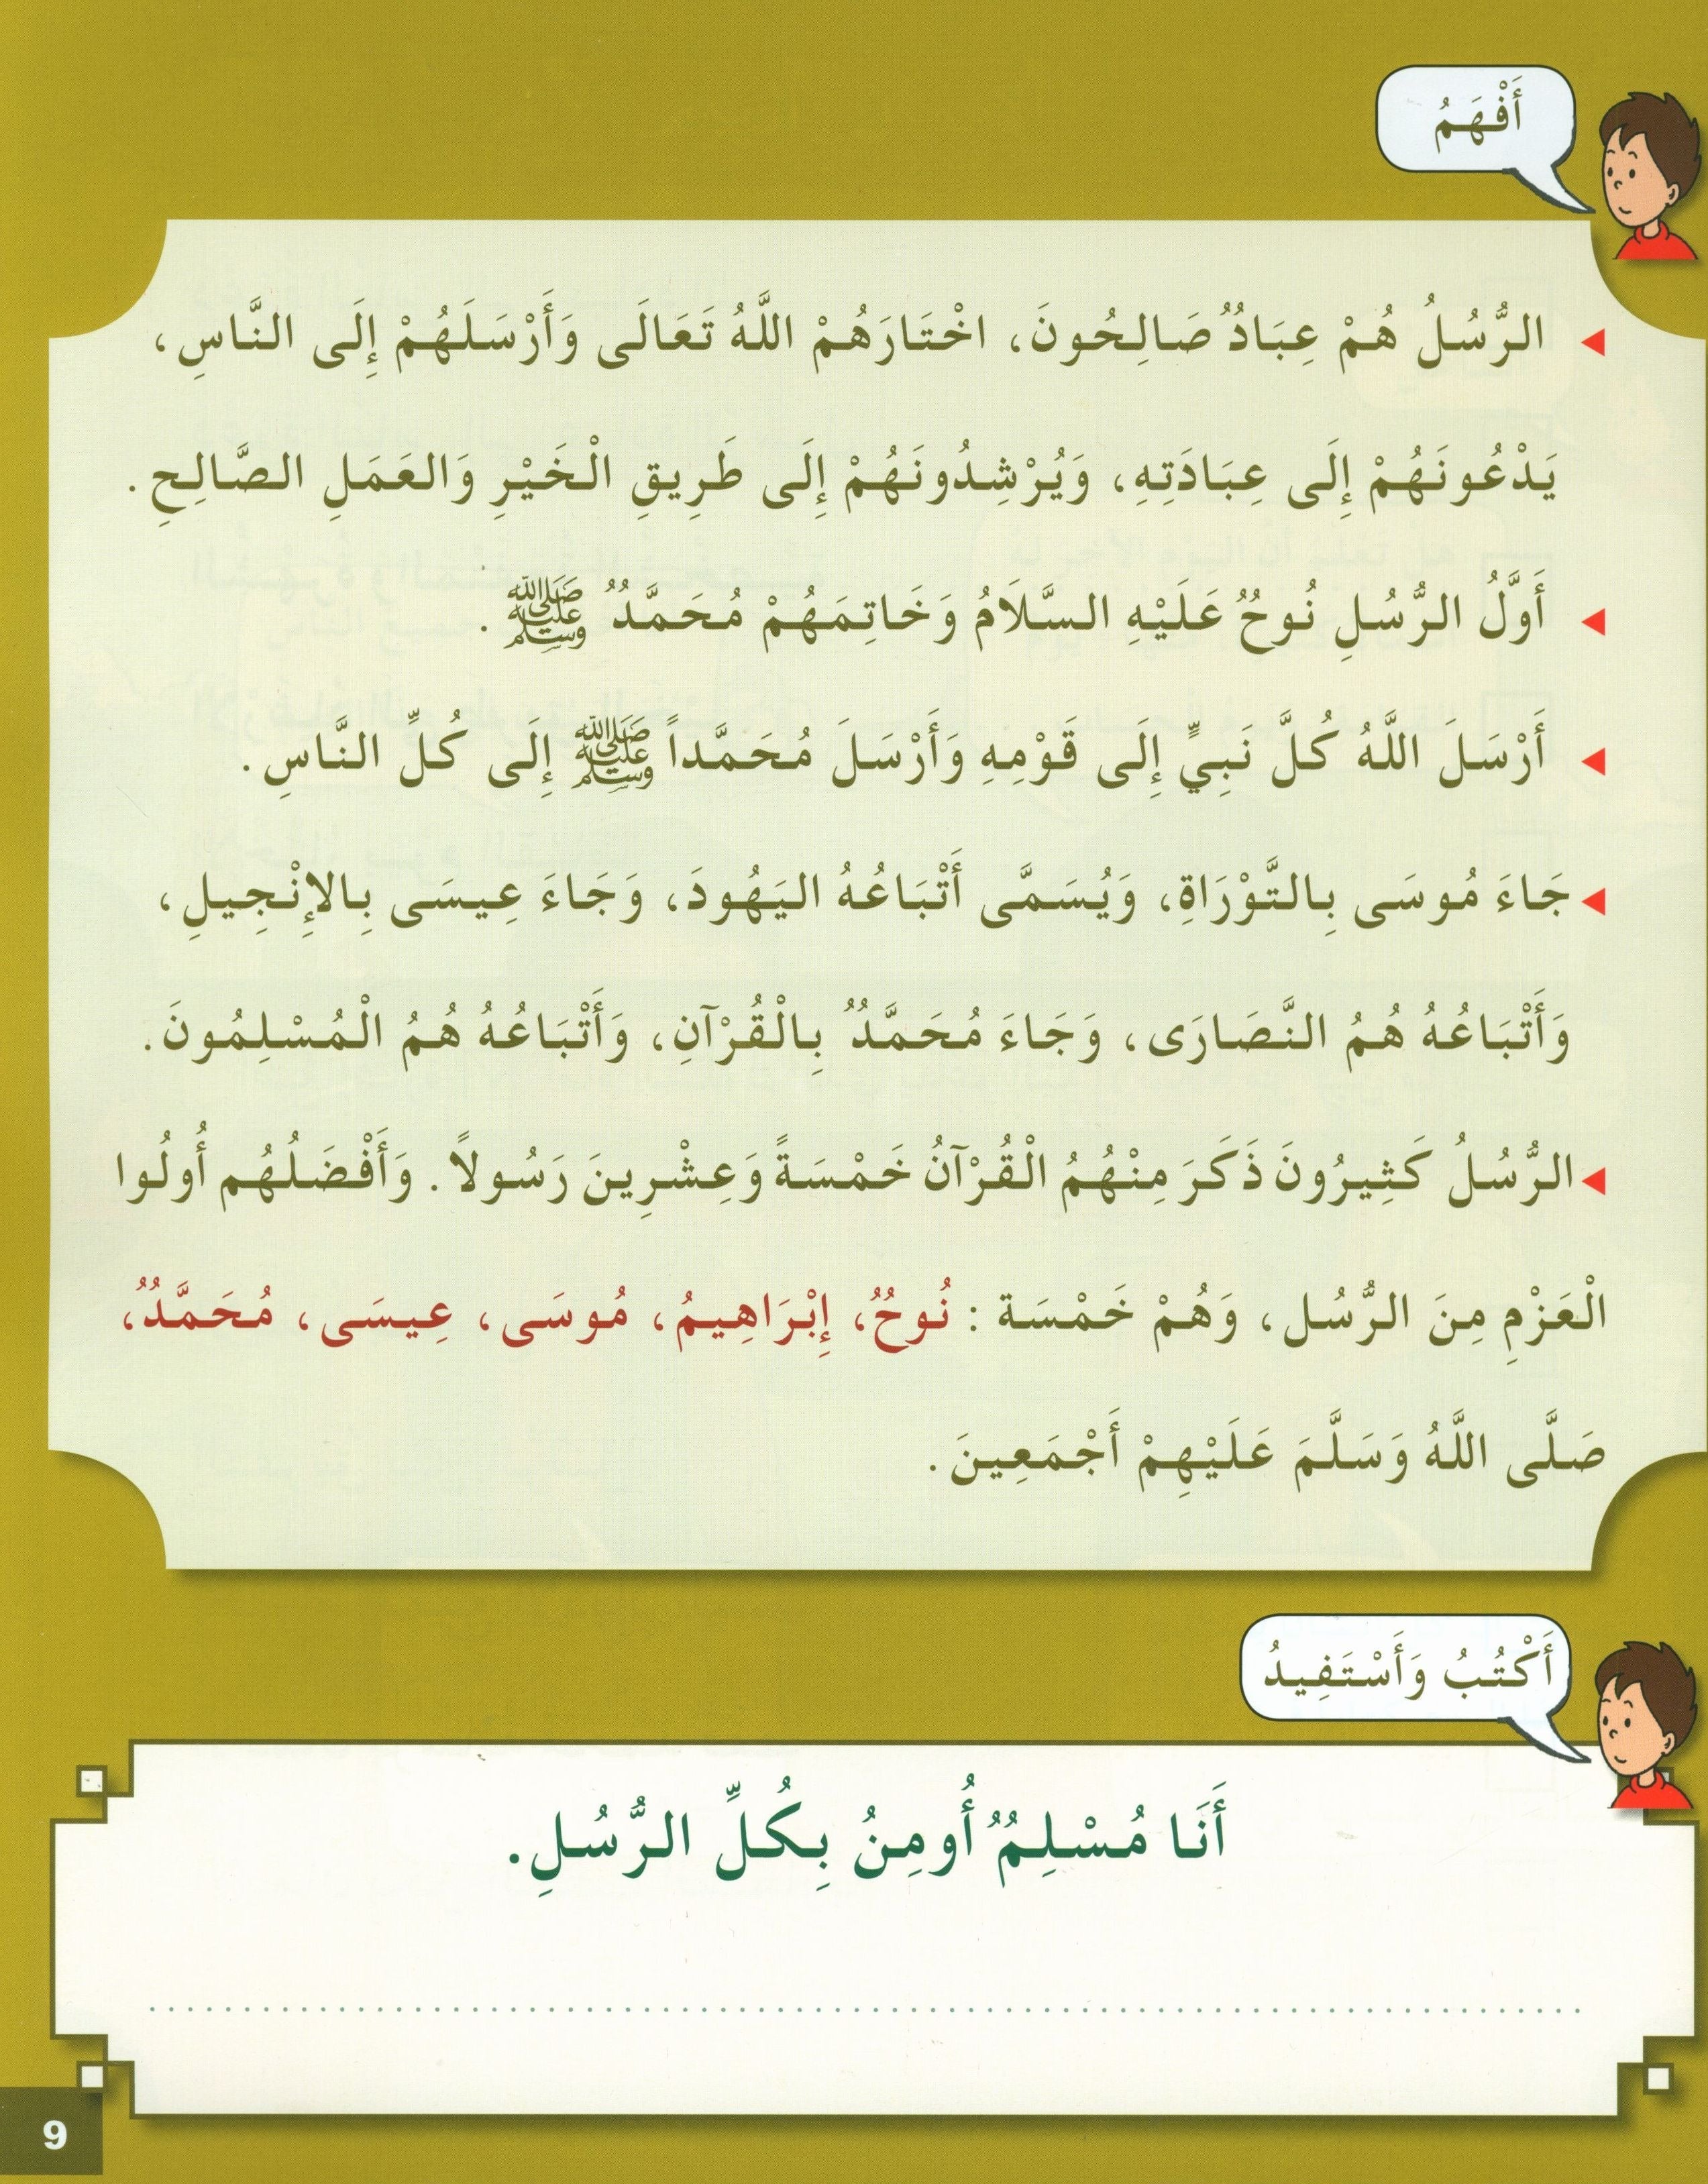 أَفْهَمُ
الرُّسُلُ هُمْ عِبَادٌ صَالِحُونَ، اخْتَارَهُمْ اللَّهُ تَعَالَى وَأَرْسَلَهُمْ إِلَى النَّاسِ،
يَدْعُونَهُمْ إِلَى عِبَادَتِهِ، وَيُرْشِدُونَهُمْ إِلَى طَرِيقِ الْخَيْرِ وَالعَمَلِ الصَّالِحِ.
أَوَّلُ الرُّسُلِ نُوحٌ عَلَيْهِ السَّلَامُ وَخَاتِمَهُمْ مُحَمَّدٌ ﷺ.
أَرْسَلَ اللَّهُ كُلَّ نَبِيٍّ إِلَى قَوْمِهِ وَأَرْسَلَ مُحَمَّداً ﷺ إِلَى كُلِّ النَّاسِ.
جَاءَ مُوسَى بِالتَّوْرَاةِ، وَيُسَمَّى أَتْبَاعُهُ اليَهُودَ، وَجَاءَ عِيسَى بِالإِنْجِيلِ،
وَأَتْبَاعُهُ هُمُ النَّصَارَى، وَجَاءَ مُحَمَّدٌ بِالْقُرْآنِ، وَأَتْبَاعُهُ هُمُ الْمُسْلِمُونَ.
الرُّسُلُ كَثِيرُونَ ذَكَرَ مِنْهُمُ الْقُرْآنُ خَمْسَةً وَعِشْرِينَ رَسُولاً. وَأَفْضَلُهُم أُولُوا
الْعَزْمِ مِنَ الرُّسُل، وَهُمْ خَمْسَة : نُوحٌ، إِبْرَاهِيمُ، مُوسَى، عِيسَى، مُحَمَّدٌ،
صَلَّى اللَّهُ وَسَلَّمَ عَلَيْهِمْ أَجْمَعِينَ.
أَكْتُبُ وَأَسْتَفِيدُ
أَنَا مُسْلِمٌ أُومِنُ بِكُلِّ الرُّسُلِ.
9